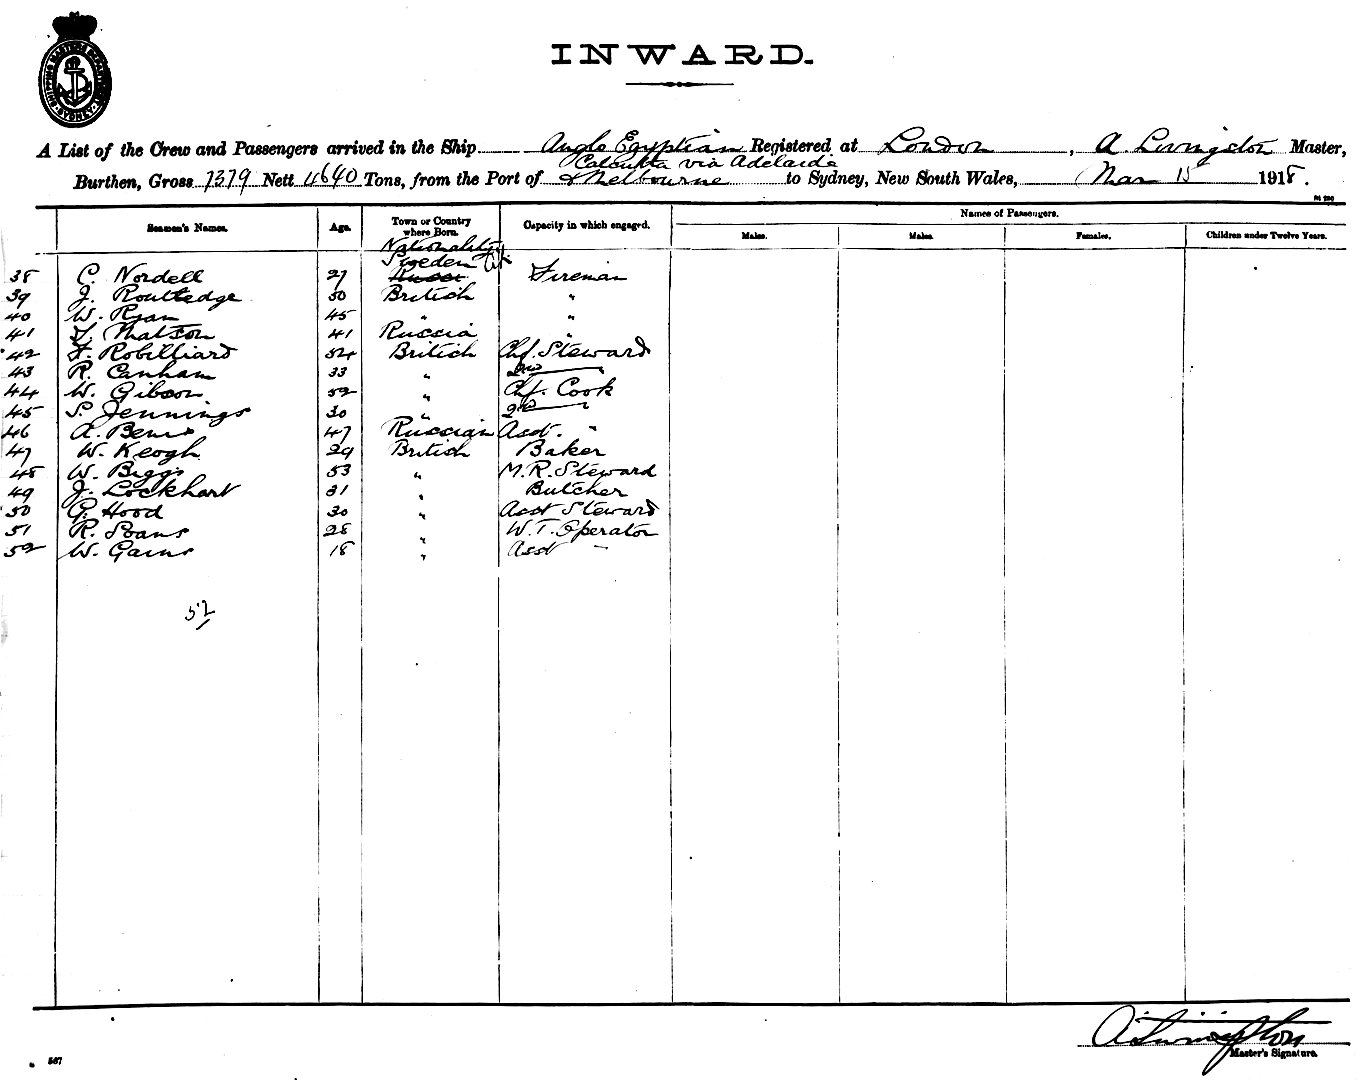 SHIPPING MASTERS DEPARTMENT SYDNEY
INWARD.
A List of the Crew and Passengers arrived in the Ship Anglo Egyptian Registered at London, A. Livingston Master,
Calcutta via Adelaide
Burthen, Gross 7379 Nett 4640 Tons, from the Port of & Melbourne to Sydney, New South Wales, Mar 15 1918.
Names of Passengers.
Seamen's Names. Age. Town or Country where Born. Capacity in which engaged. Males. Males. Females. Children under Twelve Years.
Nationality
Sweden
38 C. Nordell 27 Fireman
39 J. Routledge 50 British "
40 W. Ryan 45 " "
41 Matson 41 Russia "
42 F. Robilliard 54 British Chf. Steward
43 R. Canham 33 " 2nd
44 W. Gibson 52 " Chf. Cook
45 S. Jennings 30 " 2nd
46 A. 47 Russian Asst. "
47 W. Keogh 29 British Baker
48 W. Biggs 53 " M.R. Steward
49 J. Lockhart 31 " Butcher
50 G. Hood 30 " Asst Steward
51 R. 28 " W.T. Operator
52 W. 18 " Asst "
52
A. Livingston
Master's Signature.
567